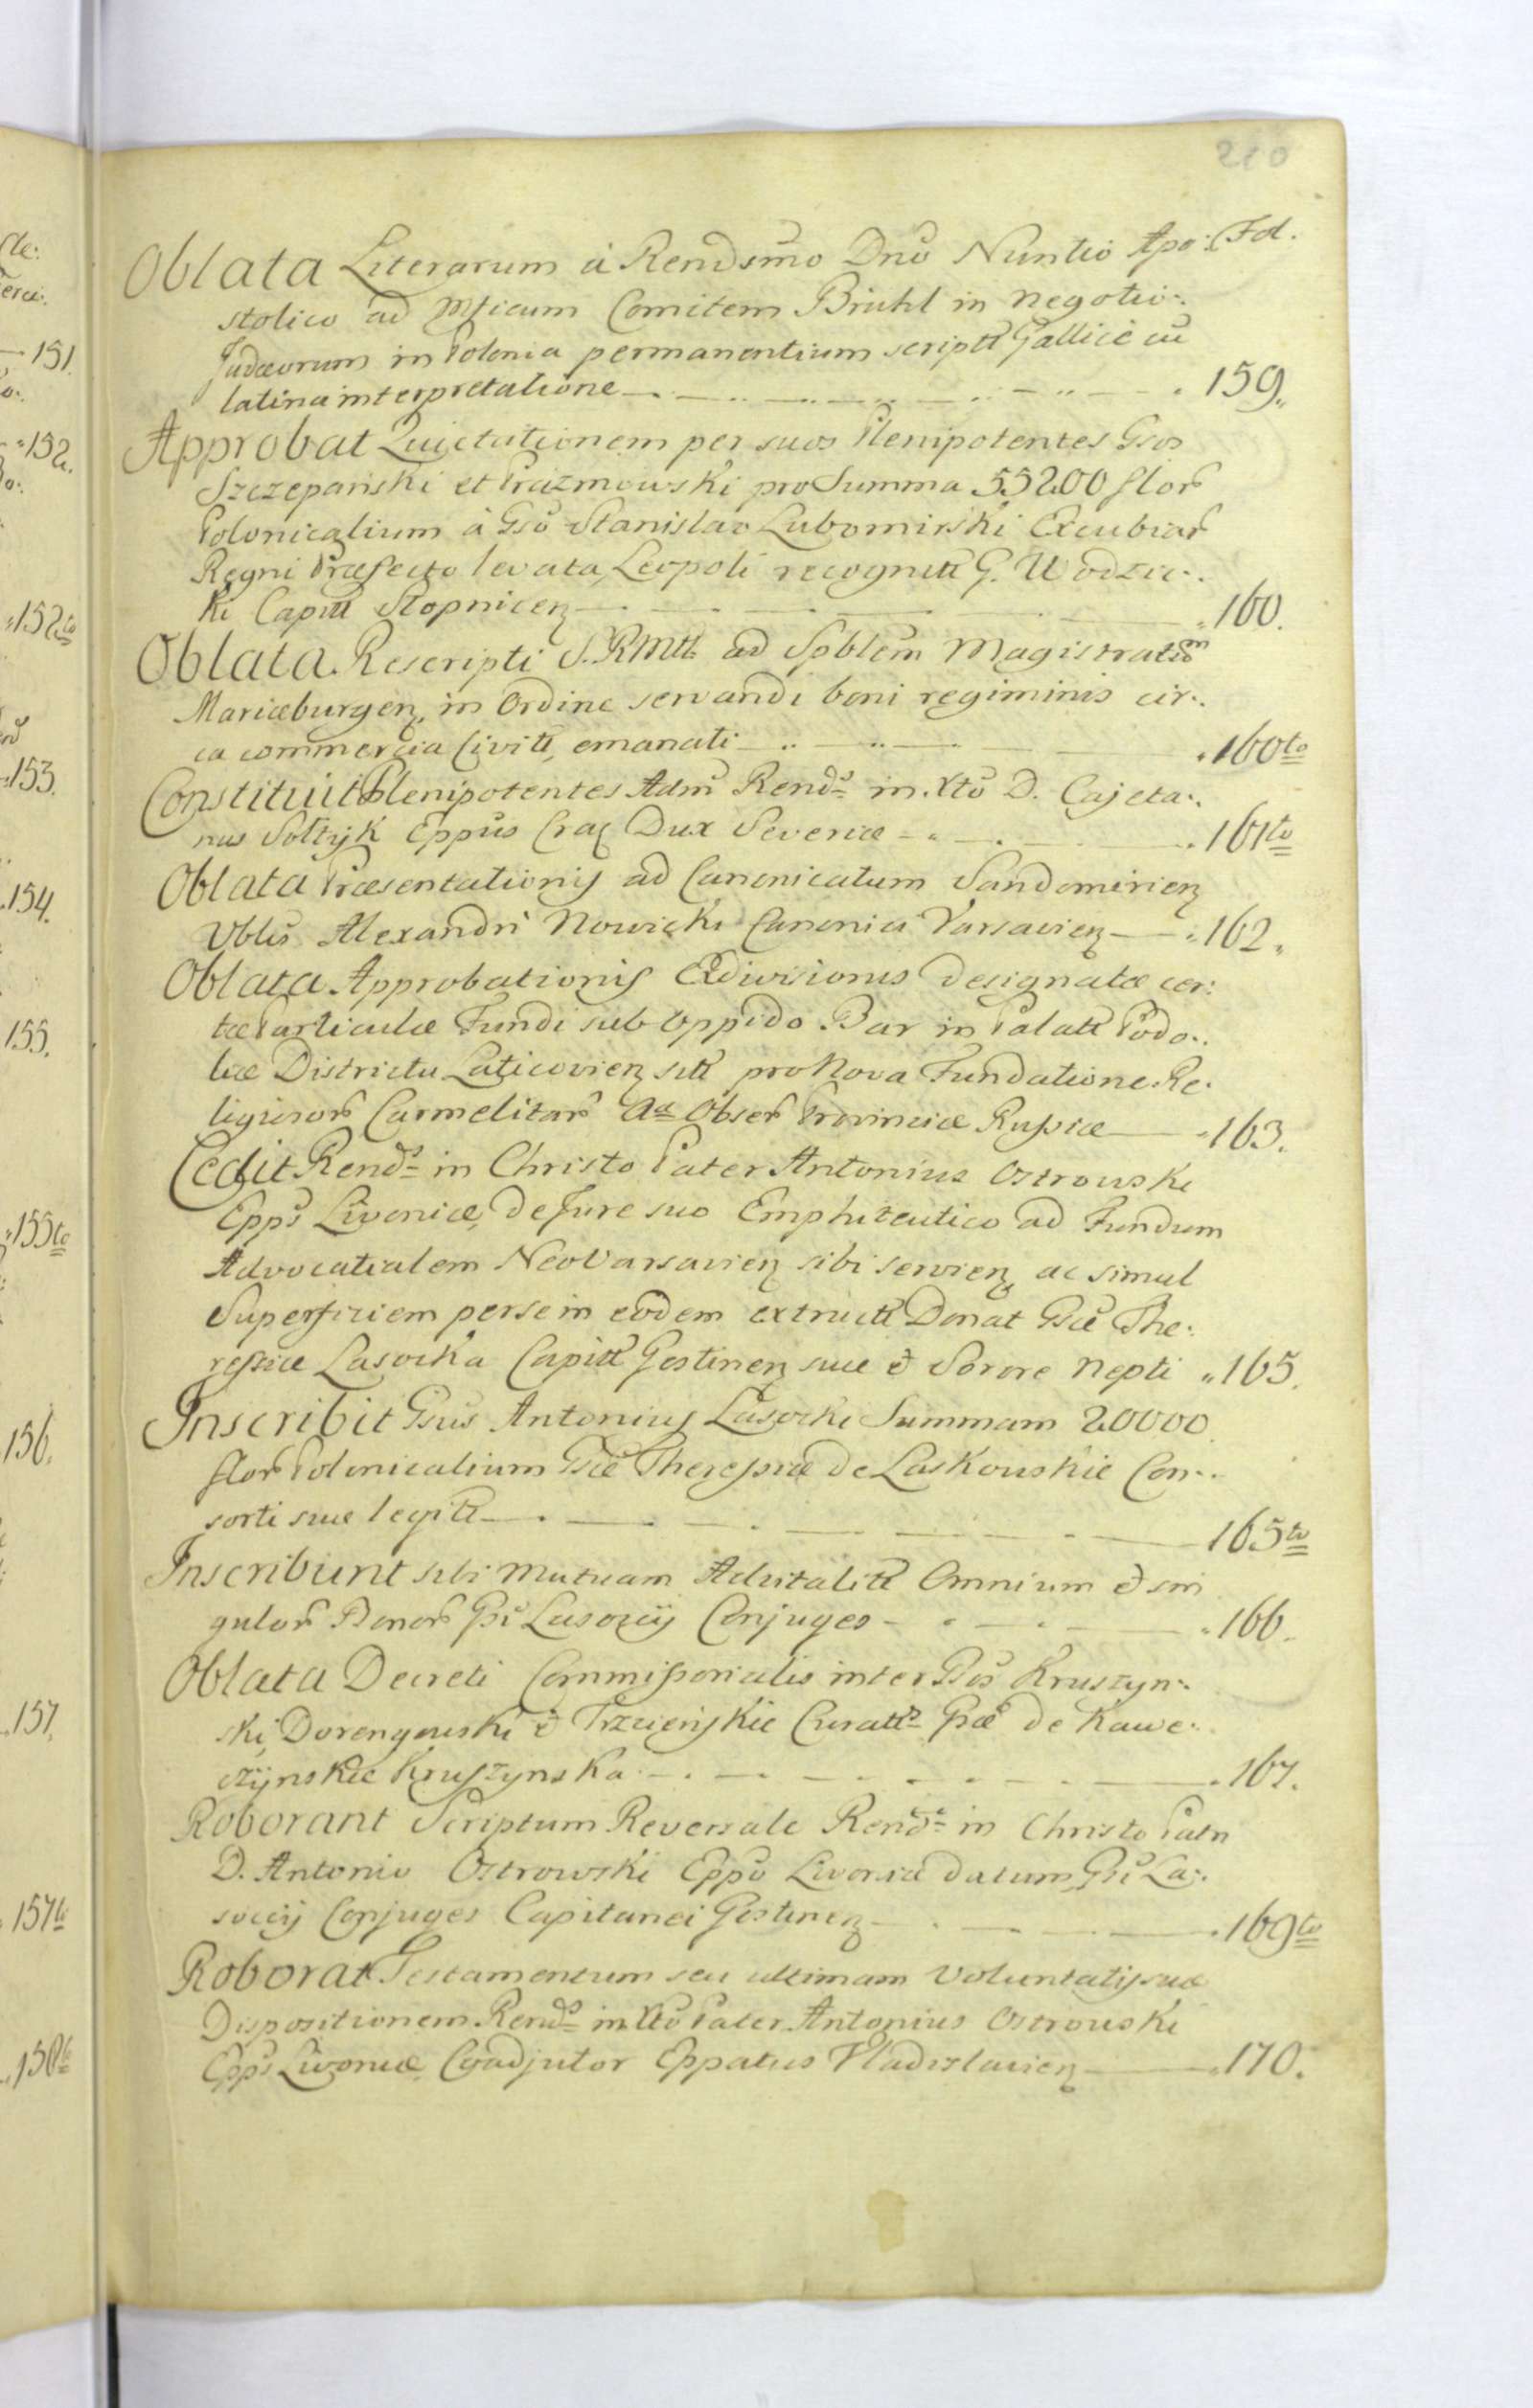 210
Fol.
Oblata Literarum à Rendsmo Dno Nuntio Apo:
stolico ad Mficum Comitem Brühl in negotio:
Judæorum in Polonia permanentium script Gallice cu
latina interpretatione 159.
Approbat Quietationem per suos Plenipotentes Gsos
Szczepański et Prazmowski pro Summa 55200 flor
Polonicalium à Gso Stanislao Lubomirski Excubiar
Regni Præfecto levata, Leopoli recognitt G. Wodzic:
ki Capitt Stopnicen 160.
Oblata Rescripti S. RMtt ad Spblem Magistratum
Mariæburgen, in Ordine servandi boni regiminis cir:
ca commercia Civitt, emanati 160to
Constituit Plenipotentes Adm Rends in Xto D. Cajeta:
nus Sołtyk Eppus Crac Dux Severiæ 161to
Oblata Præsentationis ad Canonicatum Sandomirien
Vblis Alexandri Nowicki Canonici Varsavien 162.
Oblata Approbationis Exdivisionis designatæ cer:
tæ Particulæ Fundi sub Oppido Bar in Palatt Podo:
liæ Districtu Laticovien sitt pro Nova Fundatione Re:
ligiosor Carmelitar Aæ Obser Provinciæ Russiæ 163.
Cedit Rends in Christo Pater Antonius Ostrowski
Epps Livoniæ, de Jure suo Emphiteutico ad Fundum
Advocatialem NeoVarsavien sibi servien, ac simul
Superficiem per se in eodem extructt Donat Gsæ The:
ressiæ Lasocka Capitt Gostinen suæ è Sorore Nepti 165.
Inscribit Gsus Antonius Lasocki Summam 20000
flor Polonicalium Gsæ Theressiæ de Laskowskie Con:
sorti suæ legitt 165to
Inscribunt sibi mutuam Advitalitt Omnium & sin
gulor Bonor Gsi Lasocij Conjuges 166.
Oblata Decreti Commissorialis inter Gsos Kruszyn:
ski, Dorengowski & Trzcieńskie Curatts Gsæ de Kawe:
czÿnskie Kruszynska 167.
Roborant Scriptum Reversale Rendo in Christo Patri
D. Antonio Ostrowski Eppo Livoniæ datum, Gsi La:
soccij Conjuges Capitanei Gostinen 169to
Roborat Testamentum seu ultimam Voluntatis suæ
Dispositionem Rends in Xto Pater Antonius Ostrowski
Epps Livoniæ, Coadjutor Eppatus Vladislavien 170.
151.
152.
152to
153.
154.
155.
155to
156.
157.
157to